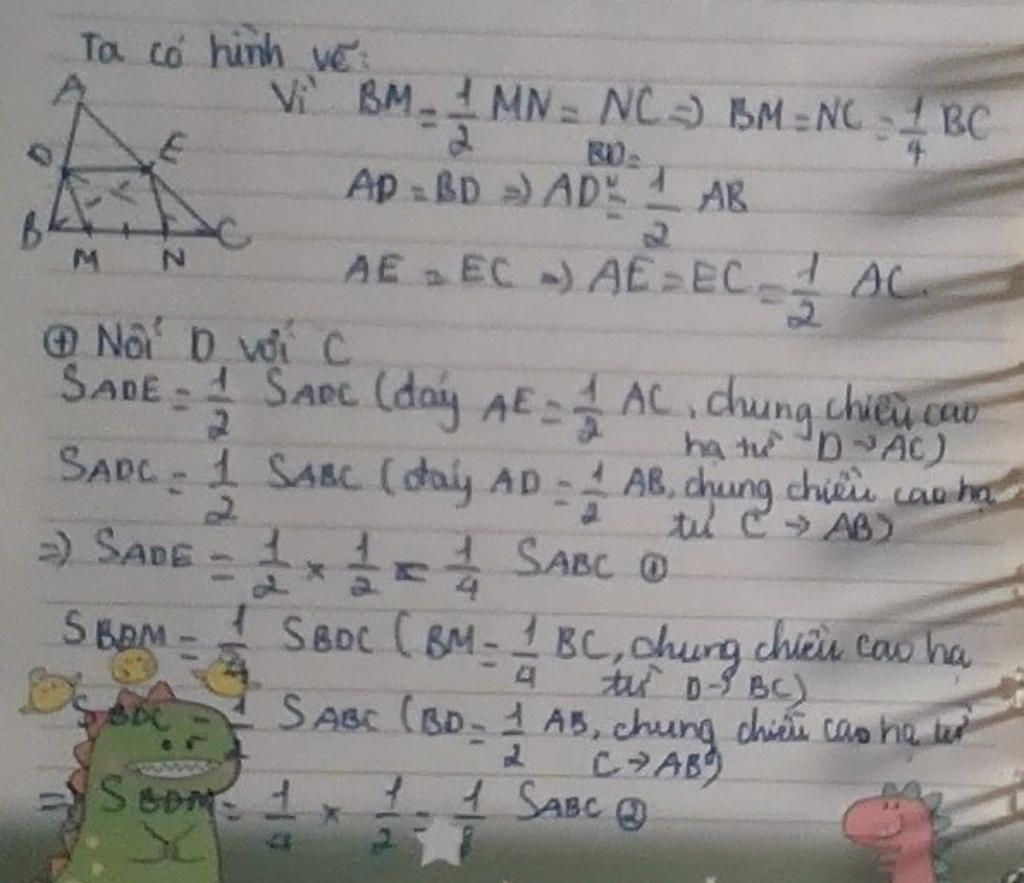 Ta có hình vẽ:
A
Vì BM = 1/2 MN = NC => BM = NC = 1/4 BC
D E
BD =
AD = BD => AD = 1/2 AB
B C
M N
AE = EC => AE = EC = 1/2 AC.
⊕ Nối D với C
SADE = 1/2 SADC (đáy AE = 1/2 AC, chung chiều cao
hạ từ D → AC)
SADC = 1/2 SABC (đáy AD = 1/2 AB, chung chiều cao hạ
từ C → AB)
=> SADE = 1/2 × 1/2 = 1/4 SABC ①
SBDM = 1/4 SBDC (BM = 1/4 BC, chung chiều cao hạ
từ D → BC)
SBDC = 1/2 SABC (BD = 1/2 AB, chung chiều cao hạ từ
C → AB)
=> SBDM = 1/4 × 1/2 = 1/8 SABC ②